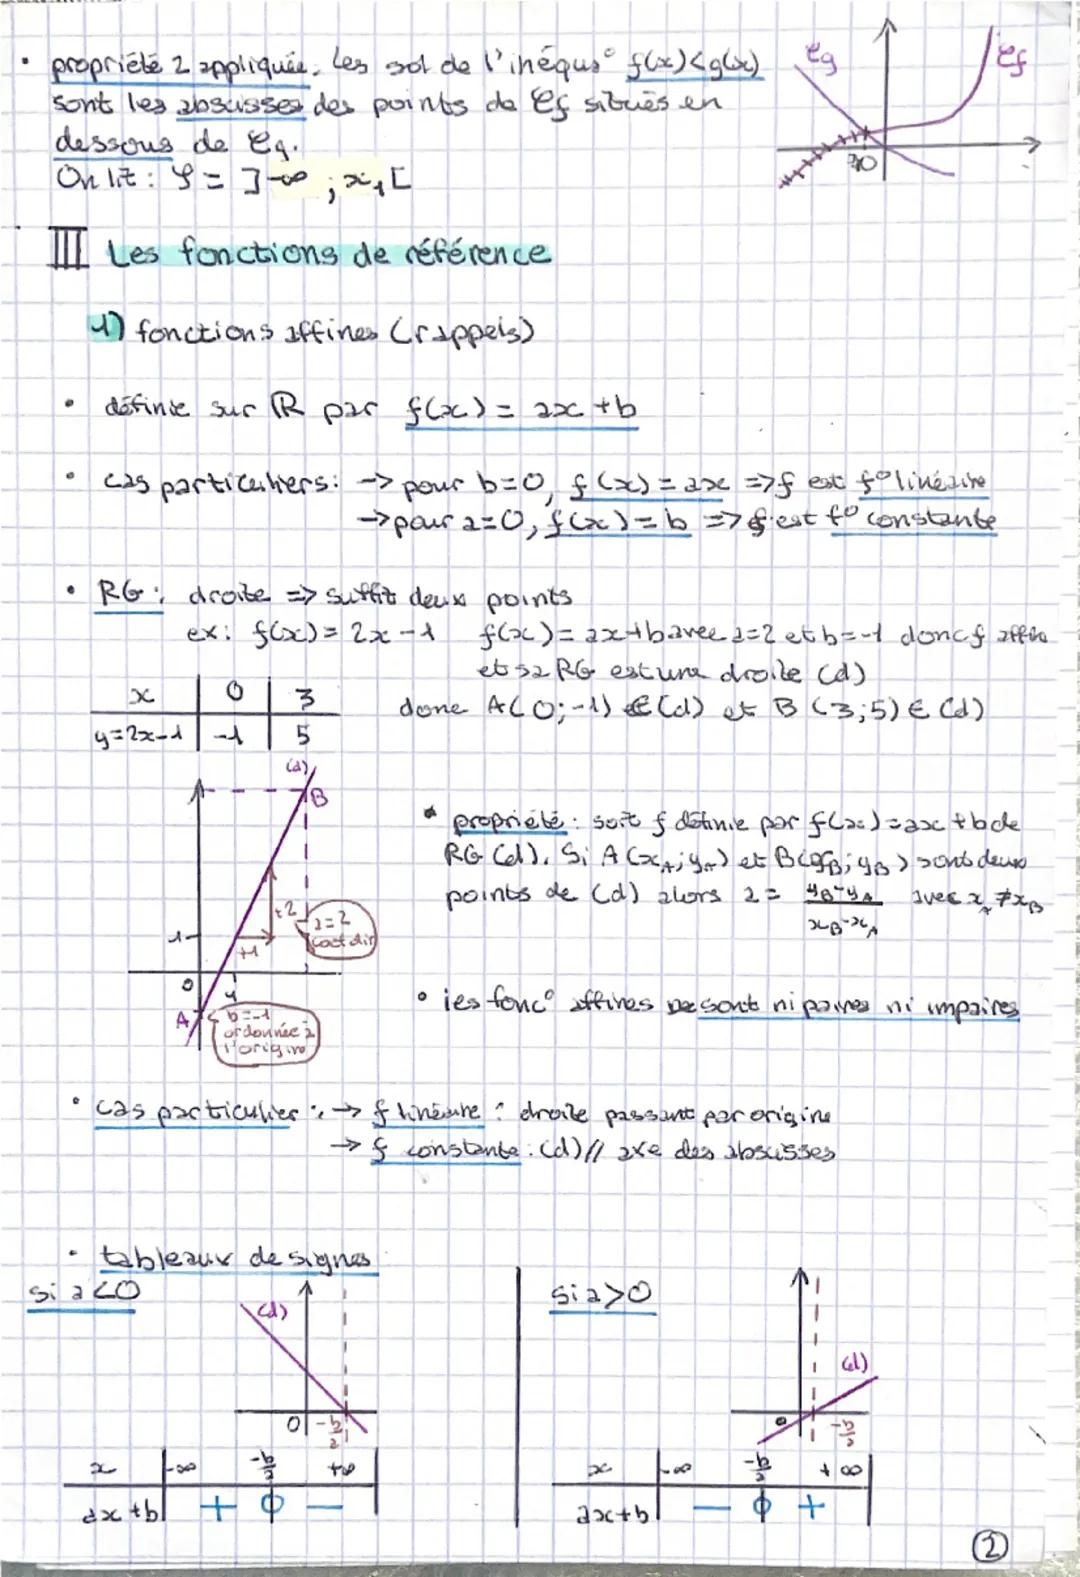 • propriété 2 appliquée. Les sol de l'inéqu° f(x)<g(x)
sont les abscisses des points de Cf situés en
dessous de Cg.
On lit : S = ]-∞ ; x₁[
Cg
Cf
III Les fonctions de référence
1) fonctions affines (rappels)
• définie sur ℝ par f(x) = ax + b
• cas particuliers: -> pour b=0, f(x) = ax => f est f° linéaire
-> pour a=0, f(x) = b => f est f° constante
• RG : droite => suffit deux points
ex: f(x) = 2x - 1 f(x) = ax+b avec a=2 et b=-1 donc f affine
et sa RG est une droite (d)
donc A(0;-1) ∈ (d) et B(3;5) ∈ (d)
x 0 3
y=2x-1 -1 5
(d)
B
+2
a=2
coef dir
1
+1
0
1
A
b=-1
ordonnée à
l'origine
* propriété : soit f définie par f(x) = ax + b de
RG (d). Si A(xA; yA) et B(xB; yB) sont deux
points de (d) alors a = (yB-yA)/(xB-xA) avec xA ≠ xB
• les fonc° affines ne sont ni paires ni impaires
• cas particulier : -> f linéaire : droite passant par origine
-> f constante : (d) // axe des abscisses
• tableaux de signes
si a<0
(d)
0 -b/a
x -∞ -b/a +∞
ax+b + 0 -
si a>0
(d)
0 -b/a
x -∞ -b/a +∞
ax+b - 0 +
2